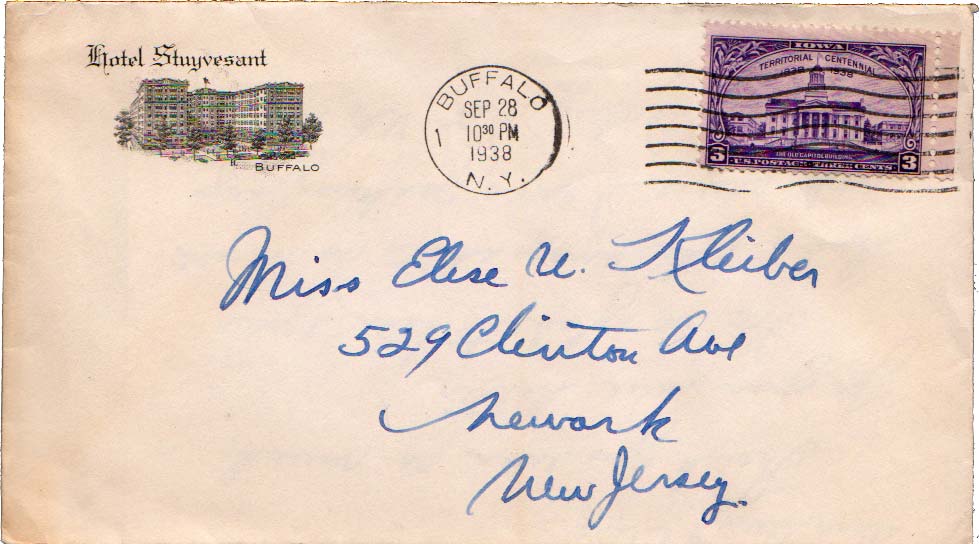 Hotel Stuyvesant
BUFFALO
BUFFALO
SEP 28
10 30 PM
1
1938
N. Y.
IOWA
TERRITORIAL CENTENNIAL
1838 1938
THE OLD CAPITOL BUILDING
3 3
U.S. POSTAGE THREE CENTS
Miss Elise U. Kleiber
529 Clinton Ave
Newark
New Jersey.